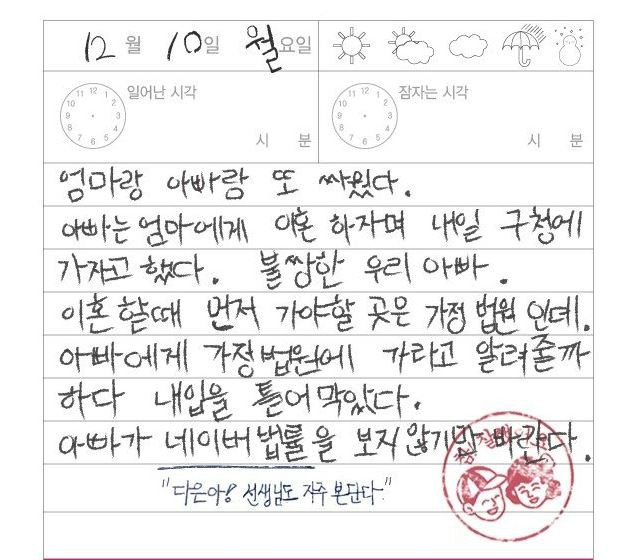 12월 10일 월요일
일어난 시각
시 분
잠자는 시각
시 분
엄마랑 아빠랑 또 싸웠다.
아빠는 엄마에게 이혼 하자며 내일 구청에
가자고 했다. 불쌍한 우리 아빠.
이혼 할때 먼저 가야할 곳은 가정 법원 인데.
아빠에게 가정법원에 가라고 알려줄까
하다 내입을 틀어막았다.
아빠가 네이버 법률을 보지 않기만 바란다.
"다은아! 선생님도 자주 본단다"
참 잘했어요